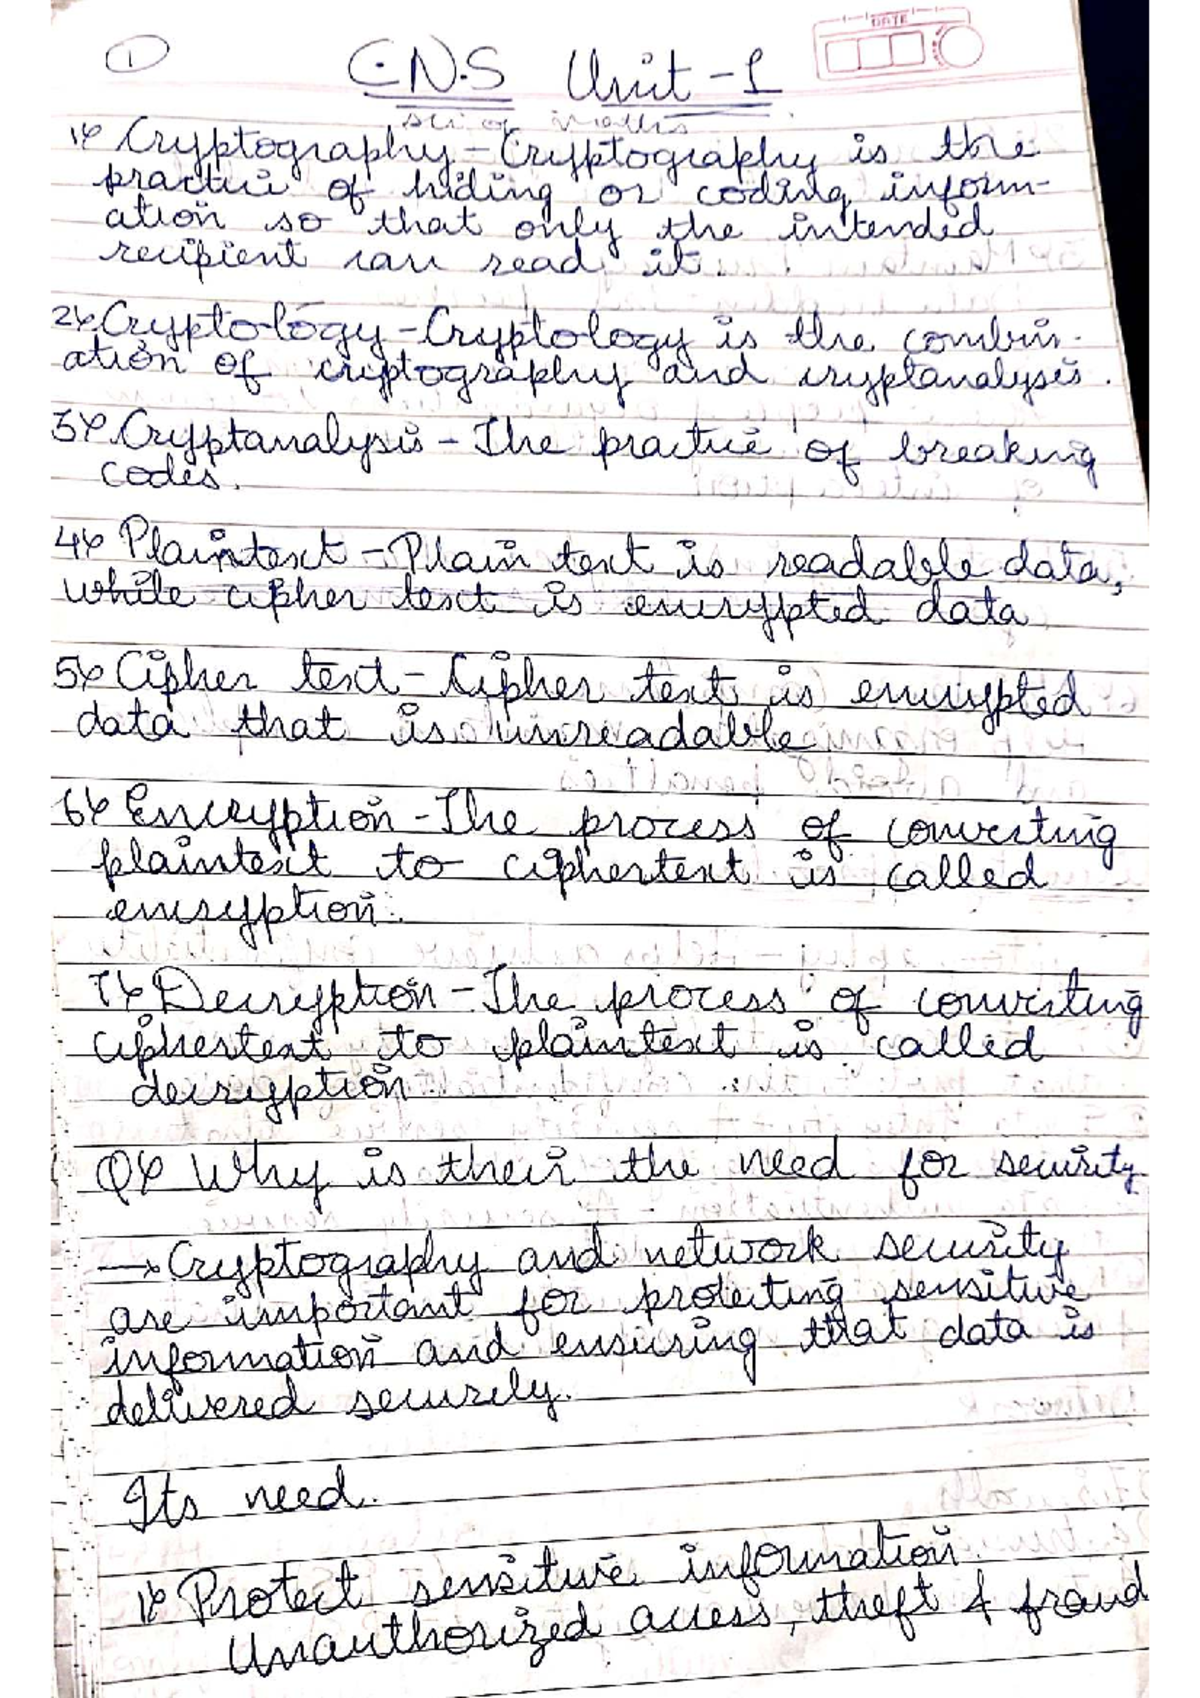 1
C.N.S Unit-1
DATE
sci of maths
1) Cryptography - Cryptography is the
practice of hiding or coding inform-
ation so that only the intended
recipient can read it
2) Cryptology - Cryptology is the combin-
ation of cryptography and cryptanalysis.
3) Cryptanalysis - The practice of breaking
codes.
4) Plaintext - Plain text is readable data,
while cipher text is encrypted data
5) Cipher text - Cipher text is encrypted
data that is unreadable
6) Encryption - The process of converting
plaintext to ciphertext is called
encryption.
7) Decryption - The process of converting
ciphertext to plaintext is called
decryption
Q) Why is their the need for security
→ Cryptography and network security
are important for protecting sensitive
information and ensuring that data is
delivered securely.
Its need.
1) Protect sensitive information
Unauthorized access, theft & fraud